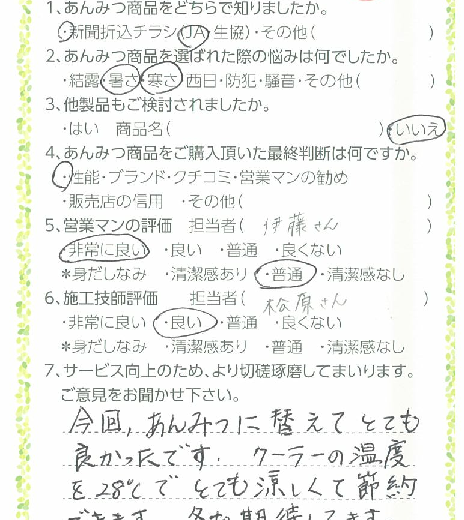 1、あんみつ商品をどちらで知りましたか。
・新聞折込チラシ(JA・生協)・その他( )
2、あんみつ商品を選ばれた際の悩みは何でしたか。
・結露・暑さ・寒さ・西日・防犯・騒音・その他( )
3、他製品もご検討されましたか。
・はい 商品名( )・いいえ
4、あんみつ商品をご購入頂いた最終判断は何ですか。
・性能・ブランド・クチコミ・営業マンの勧め
・販売店の信用 ・その他( )
5、営業マンの評価 担当者( 伊藤さん )
・非常に良い ・良い ・普通 ・良くない
*身だしなみ ・清潔感あり ・普通 ・清潔感なし
6、施工技師評価 担当者( 松原さん )
・非常に良い ・良い ・普通 ・良くない
*身だしなみ ・清潔感あり ・普通 ・清潔感なし
7、サービス向上のため、より切磋琢磨してまいります。
ご意見をお聞かせ下さい。
今回,あんみつに替えてとても
良かったです. クーラーの温度
を28℃でとても涼しくて節約
できます. 冬も期待してます